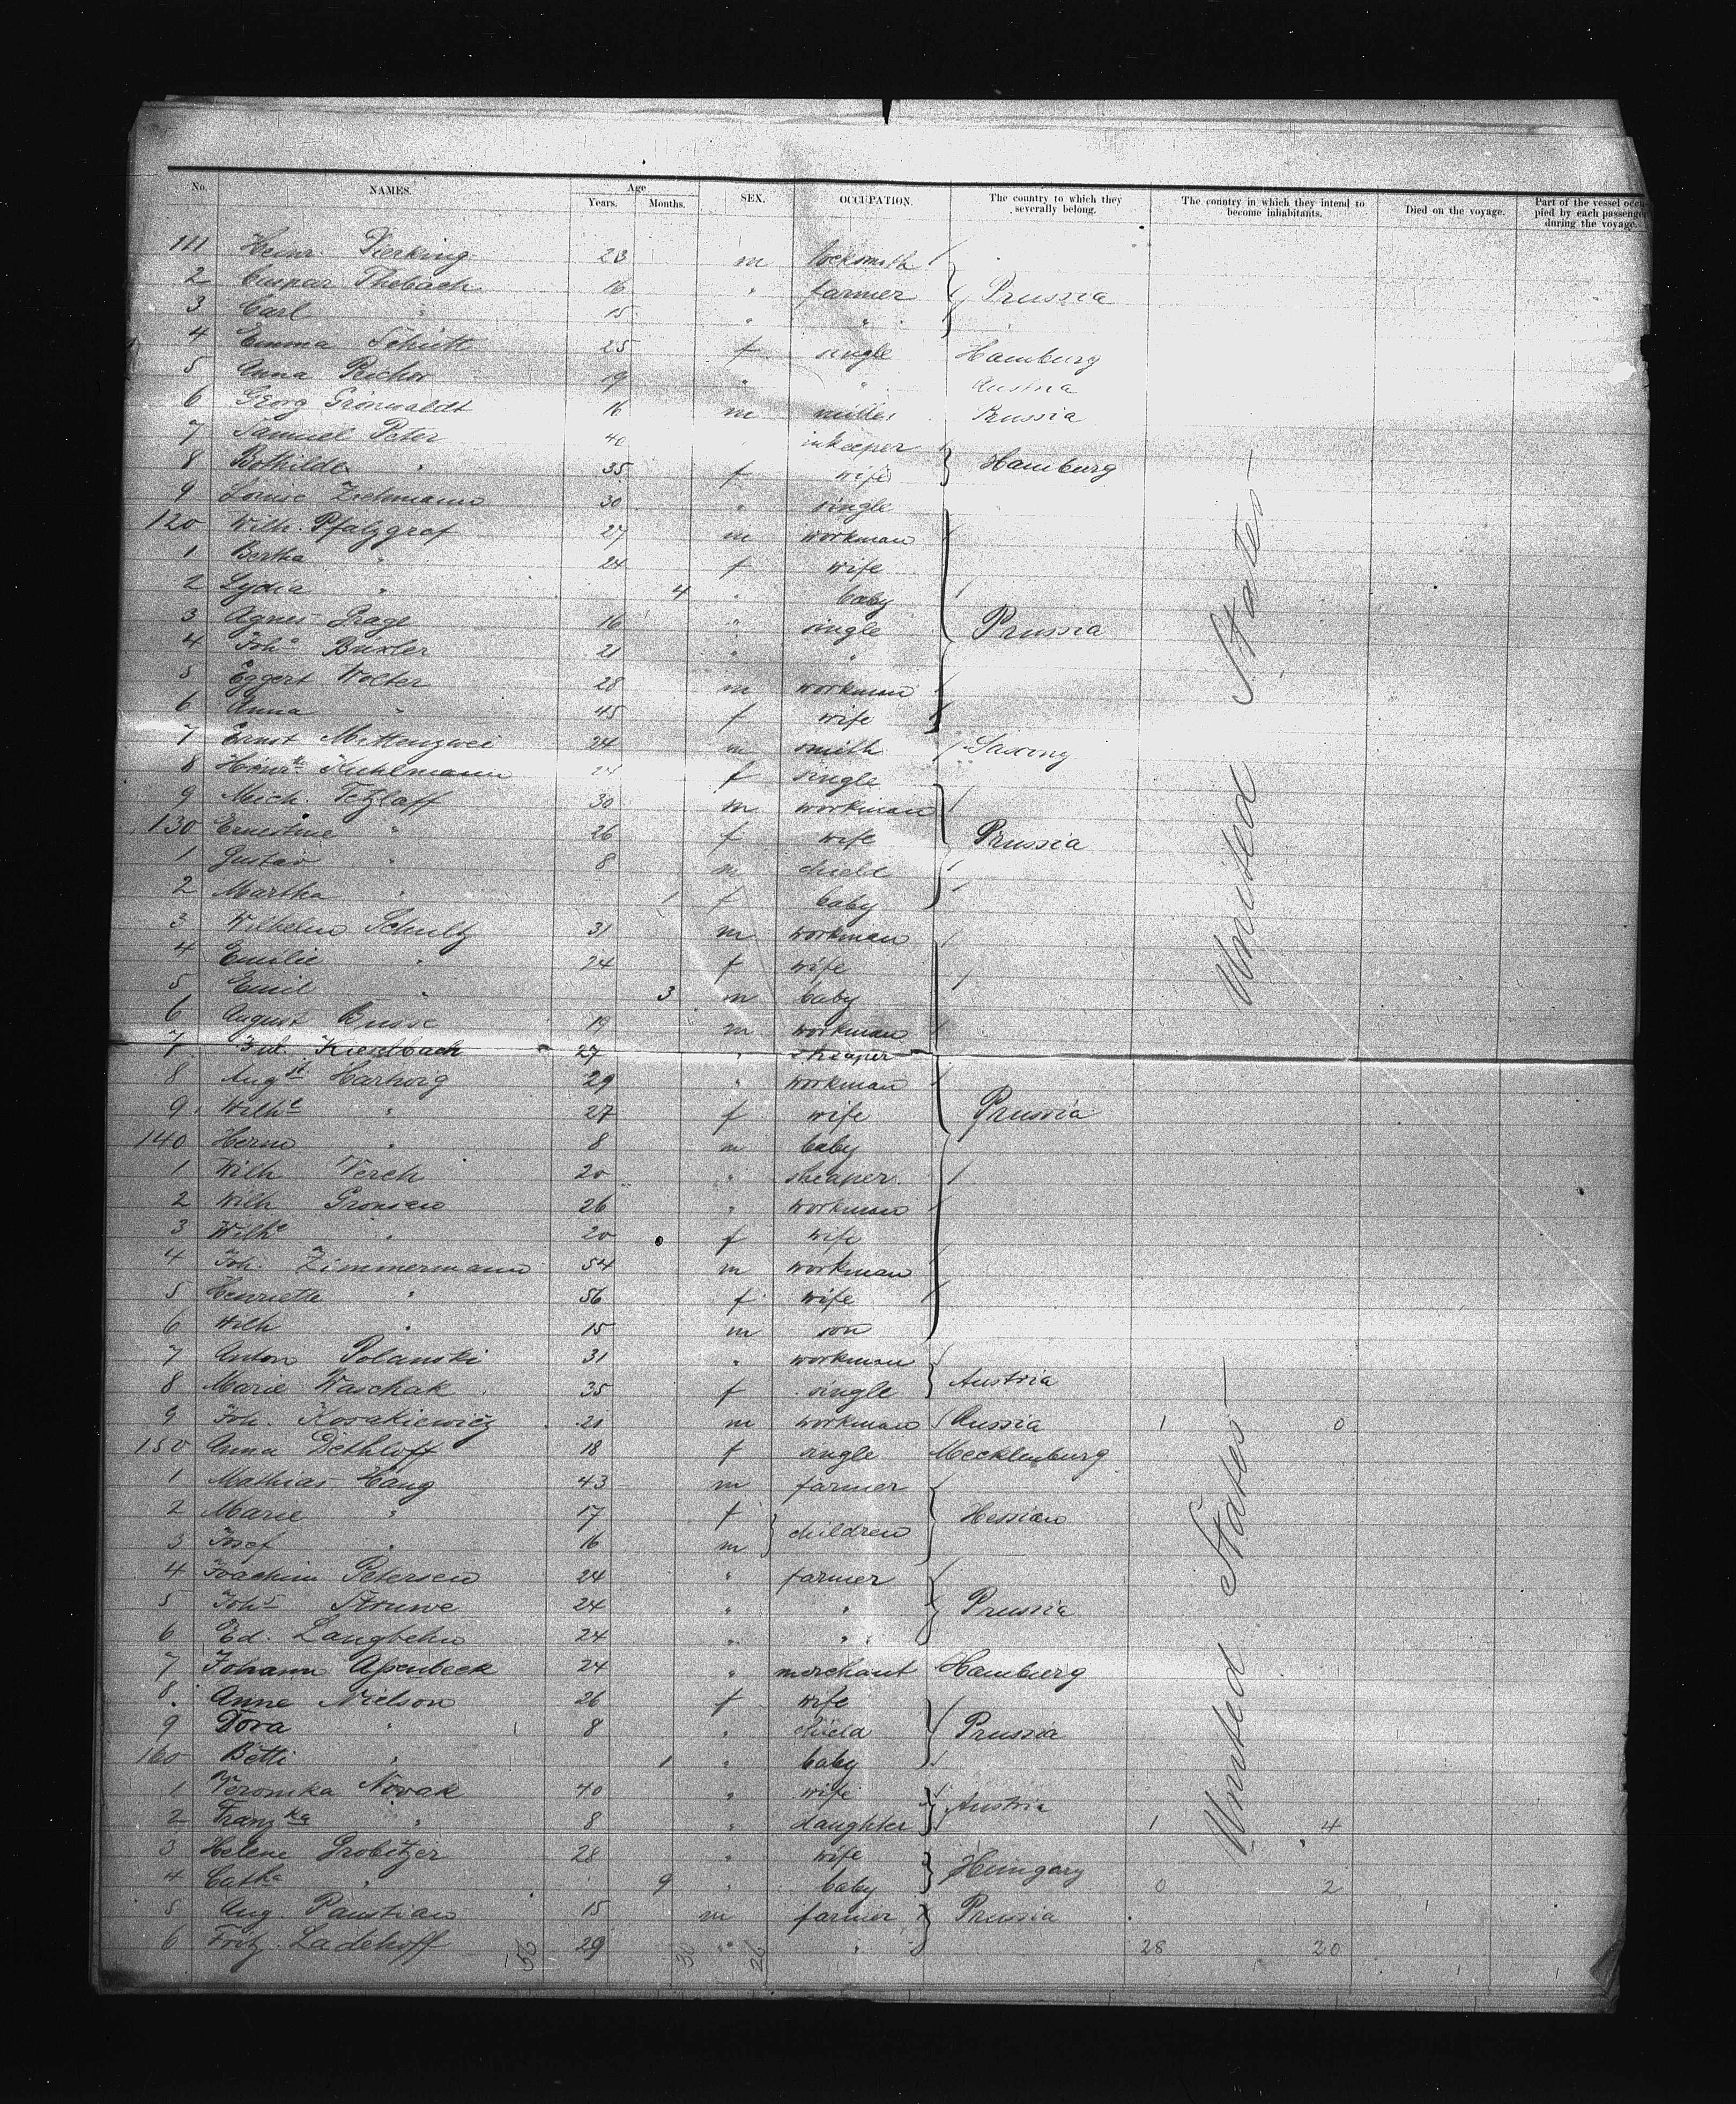 No. NAMES. Age Years. Months. SEX. OCCUPATION. The country to which they severally belong. The country in which they intend to become inhabitants. Died on the voyage. Part of the vessel occupied by each passenger during the voyage.
111 Heinr. Pierking 23 m locksmith
2 Caspar Thebach 16 " farmer Prussia
3 Carl " 15 " "
4 Emma Schütt 25 f single Hamburg
5 Anna 19 " " Austria
6 Georg Grönwaldt 16 m miller Prussia
7 Samuel Peter 40 inkeeper
8 Bothilde " 35 f wife Hamburg
9 Louise Ziehmann 30 " single
120 Wilh. Pfalzgraf 27 m workman
1 Bertha " 24 f wife
2 Lydia " 4 " baby
3 Agnes Prage 16 " single Prussia
4 Joh.a Buxler 21 " "
5 Eggert Wolter 28 m workman
6 Anna " 45 f wife
7 Ernst Mittenzwei 24 m smith Saxony
8 Henr.tte Kuhlmann 24 f single
9 Mich. Tetzlaff 30 m workman
130 Ernestine " 26 f wife Prussia
1 Gustav " 8 m chield
2 Martha " 1 f baby
3 Wilhelm Schultz 31 m workman
4 Emilie " 24 f wife
5 Emil " 3 m baby
6 August Busse 19 m workman
7 Jul. Kieselbach 27 " sheaper
8 Augst Hartwig 29 " workman
9 Wilhe " 27 f wife Prussia
140 Herm " 8 m baby
1 Wilh Verch 20 " sheaper
2 Wilh Gronsen 26 " workman
3 Wilhe " 20 f wife
4 Joh. Zimmermann 54 m workman
5 Henriette " 56 f wife
6 Wilh " 15 m son
7 Anton Polanski 31 " workman
8 Marie Waschak 35 f single Austria
9 Joh. Kovakiewicz 21 m workman Russia 1 0
150 Anna Dethloff 18 f single Mecklenburg
1 Mathias Haug 43 m farmer
2 Marie " 17 f children Hessian
3 Josef " 16 m
4 Joachim Petersen 24 " farmer
5 Johs Struwe 24 " " Prussia
6 Ed. Langbehn 24 " "
7 Johann Apenbeck 24 " merchant Hamburg
8 Anne Nielson 26 f wife
9 Dora " 8 " chield Prussia
160 Betti " 1 " baby
1 Veronika Novak 40 " wife Austria
2 Franzka " 8 " daughter 1 4
3 Helene Grobitzer 28 " wife Hungary
4 Catha " 9 " baby 0 2
5 Aug. Paustian 15 m farmer Prussia
6 Fritz Ladehoff 29 " " 28 20
56 30 26
United States
United States